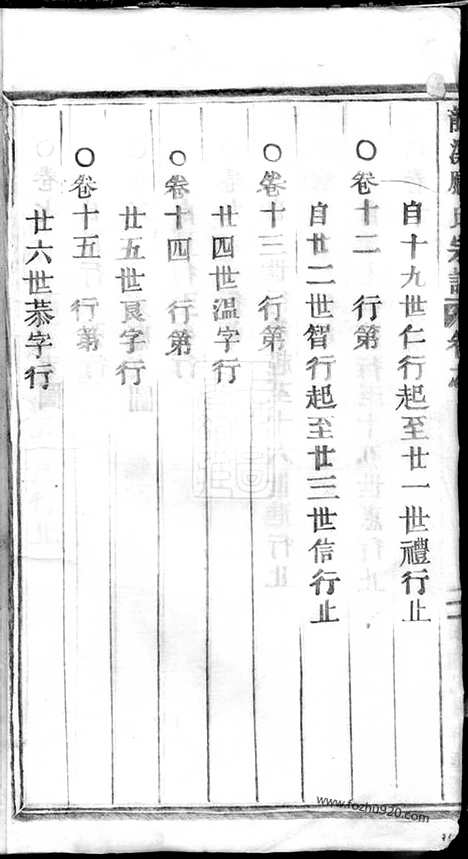 自十九世仁行起至廿一世禮行止
○卷十二 行第
自廿二世智行起至廿三世信行止
○卷十三 行第
廿四世溫字行
○卷十四 行第
廿五世良字行
○卷十五 行第
廿六世恭字行
www.fozhu920.com